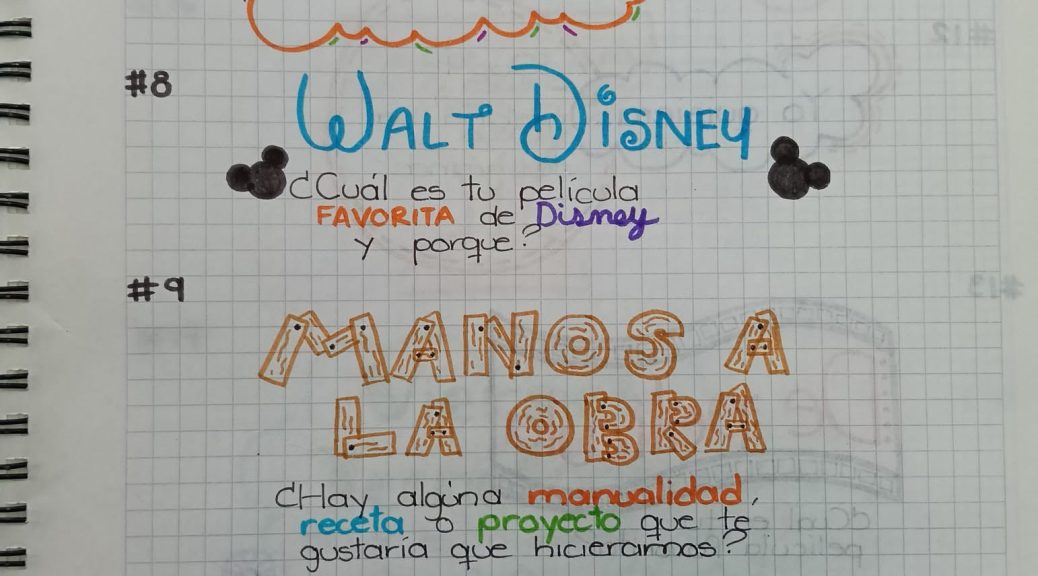 #8
WALT DISNEY
¿Cuál es tu película
FAVORITA de Disney
y porque?
#9
MANOS A
LA OBRA
¿Hay algúna manualidad,
receta o proyecto que te
gustaría que hicieramos?